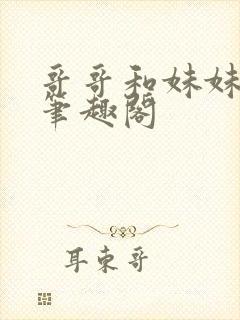 哥哥和妹妹
笔趣阁
耳东哥